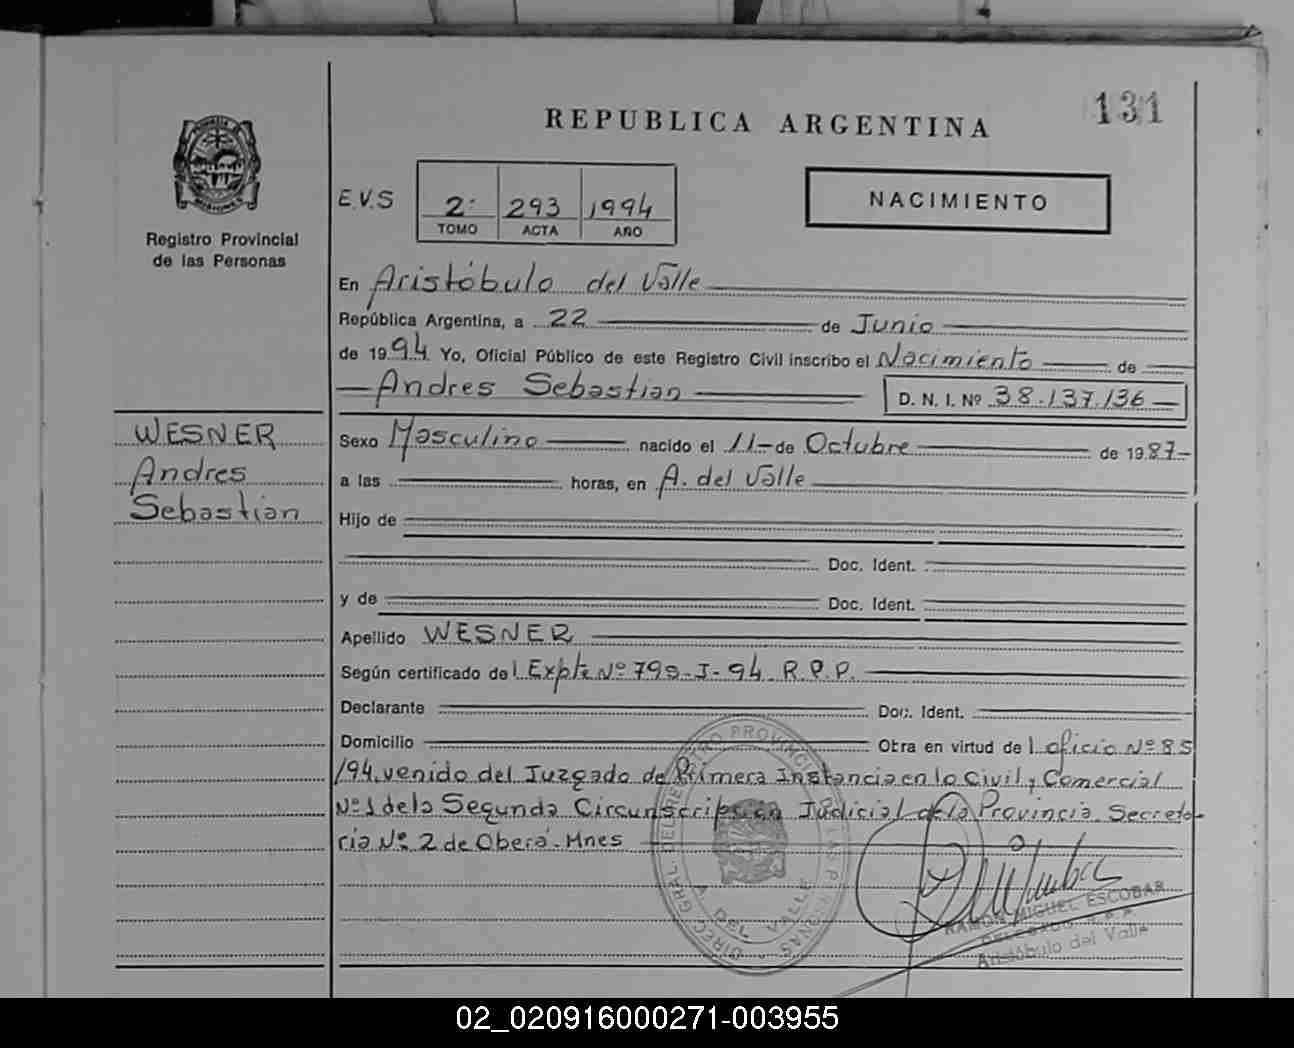 131
REPUBLICA ARGENTINA
PROVINCIA DE
MISIONES
Registro Provincial
de las Personas
E.V.S
2º 293 1994
TOMO ACTA AÑO
NACIMIENTO
En Aristóbulo del Valle
República Argentina, a 22 de Junio
de 1994 Yo, Oficial Público de este Registro Civil inscribo el Nacimiento de
Andres Sebastian D. N. I. Nº 38.137.136
WESNER
Andres
Sebastian
Sexo Masculino nacido el 11 de Octubre de 1987
a las horas, en A. del Valle
Hijo de
Doc. Ident.
y de Doc. Ident.
Apellido WESNER
Según certificado del Expte Nº 795-J-94 R.P.P.
Declarante Doc. Ident.
Domicilio Obra en virtud del oficio Nº 85
/94 venido del Juzgado de Primera Instancia en lo Civil y Comercial
Nº 1 de la Segunda Circunscripcion Judicial de la Provincia Secreta-
ria Nº 2 de Oberá. Mnes
DIREC. GRAL. DEL REGISTRO PROVINCIAL DE LAS PERSONAS
A. DEL VALLE
RAMON MIGUEL ESCOBAR
R.P.P.
Aristóbulo del Valle
02_020916000271-003955